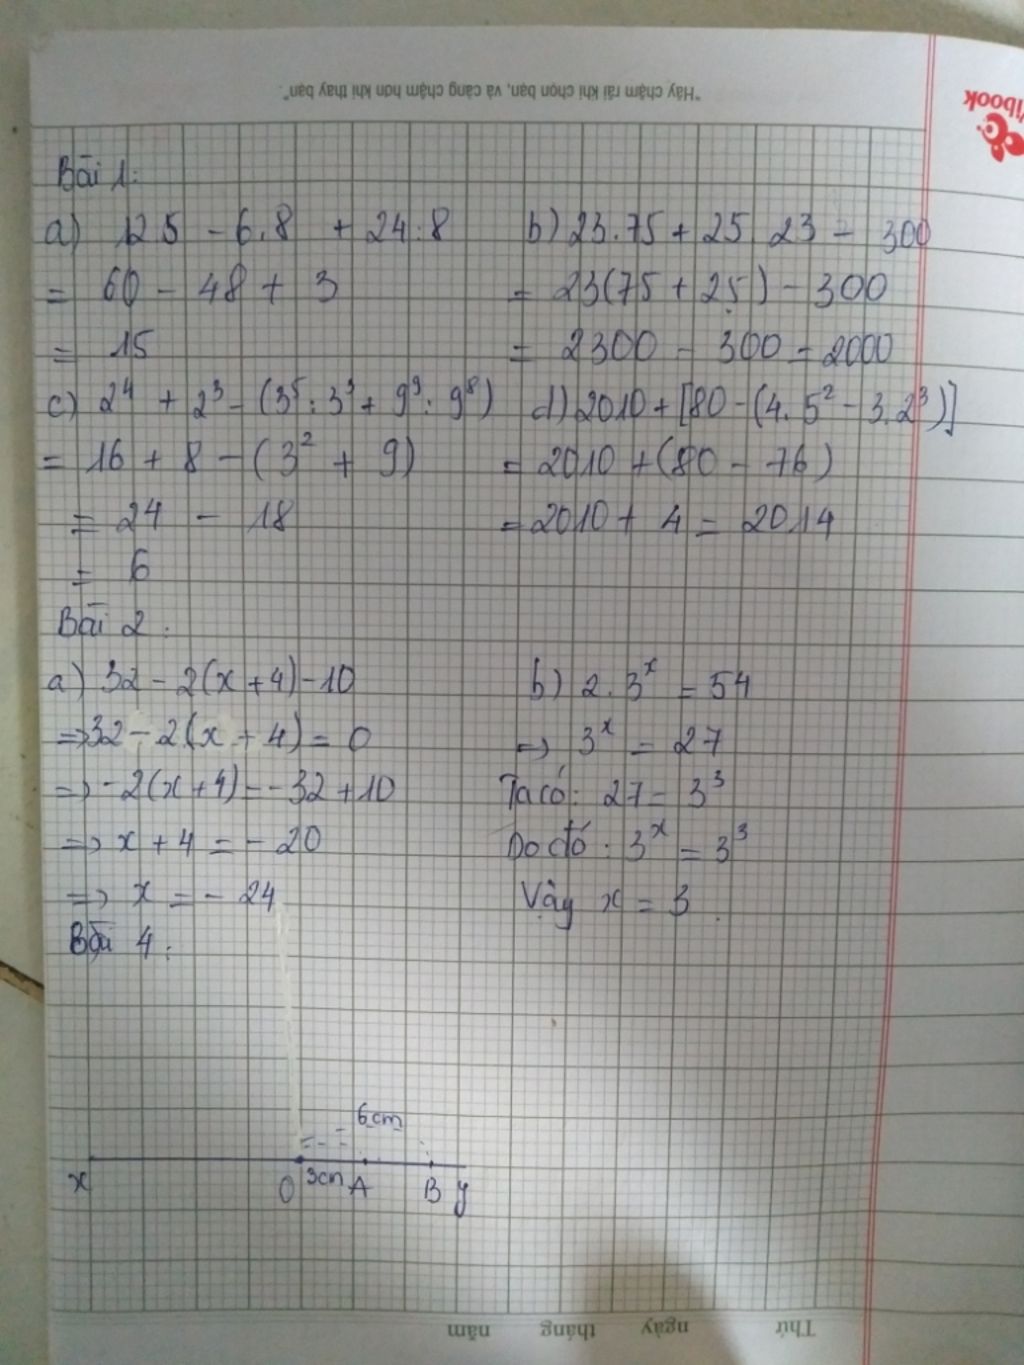 "Hãy chậm rãi khi chọn bạn, và càng chậm hơn khi thay bạn".
Bài 1:
a) 12 5 - 6.8 + 24:8
= 60 - 48 + 3
= 15
b) 23.75 + 25 23 - 300
= 23(75 + 25) - 300
= 2300 - 300 = 2000
c) 2⁴ + 2³ - (3⁵ : 3³ + 9⁹ : 9⁸)
= 16 + 8 - (3² + 9)
= 24 - 18
= 6
d) 2010 + [80 - (4. 5² - 3.2³)]
= 2010 + (80 - 76)
= 2010 + 4 = 2014
Bài 2:
a) 32 - 2(x + 4) - 10
=> 32 - 2(x + 4) = 0
=> - 2(x + 4) = - 32 + 10
=> x + 4 = - 20
=> x = - 24
b) 2. 3ˣ = 54
=> 3ˣ = 27
Ta có: 27 = 3³
Do đó: 3ˣ = 3³
Vậy x = 3.
Bài 4:
6cm
x O 3cm A B y
Thứ ngày tháng năm